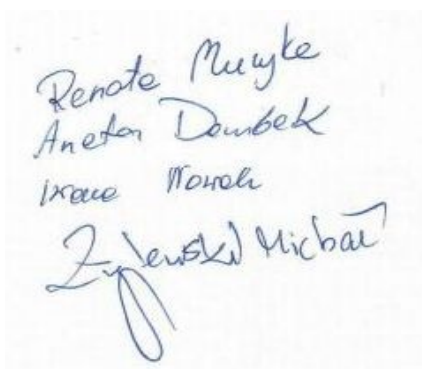 Renata
Aneta Dembek
Irena Nowak
Żylewski Michał